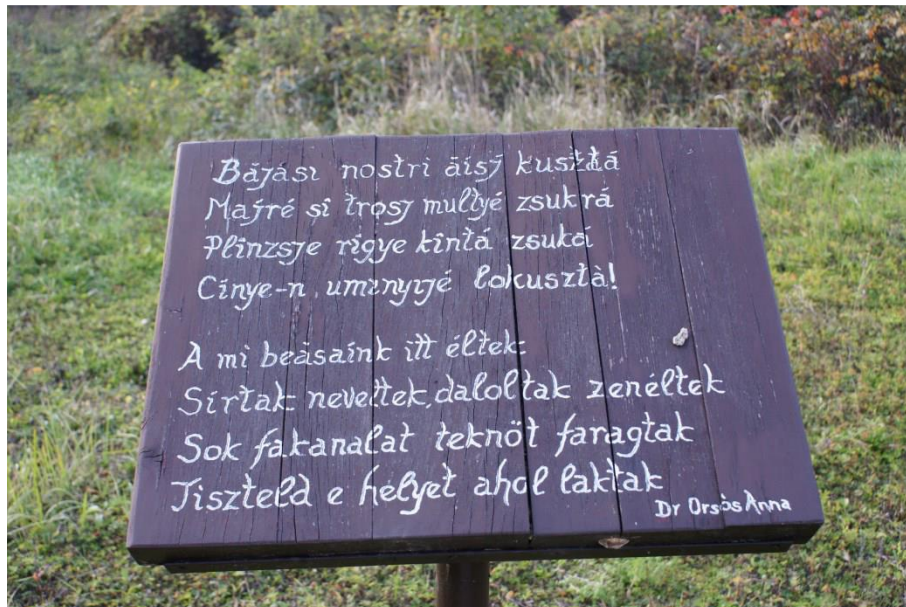 Bájási nostri áisj kusztá
Majré si trosj multyé zsukrá
Plînzsje rîgye kîntá zsuká
Cînye-n umînyijé lokusztá!
A mi beásaink itt éltek
Sírtak nevettek, daloltak zenéltek
Sok fakanalat teknőt faragtak
Tiszteld e helyet ahol laktak
Dr Orsós Anna